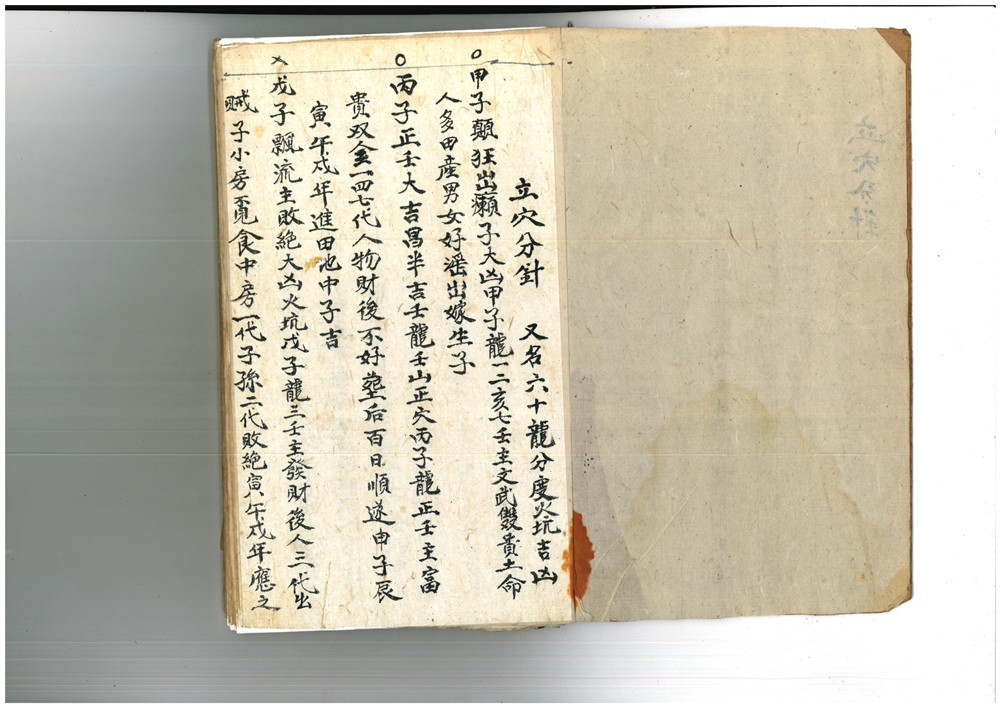 立穴分針
立穴分針 又名六十龍分度火坑吉凶
甲子顛狂出癩子大凶甲子龍一二亥七壬主文武雙貴土命
人多田產男女好滛出嫁生子
丙子正壬大吉昌半吉壬龍壬山正穴丙子龍正壬主富
貴双全一四七代人物財後不好塟后百日順遂申子辰
寅午戍年進田地中子吉
戊子飄流主敗絕大凶火坑戊子龍三壬主發財後人三代出
賊子小房覓食中房一代子孫二代敗絕寅午戍年應之